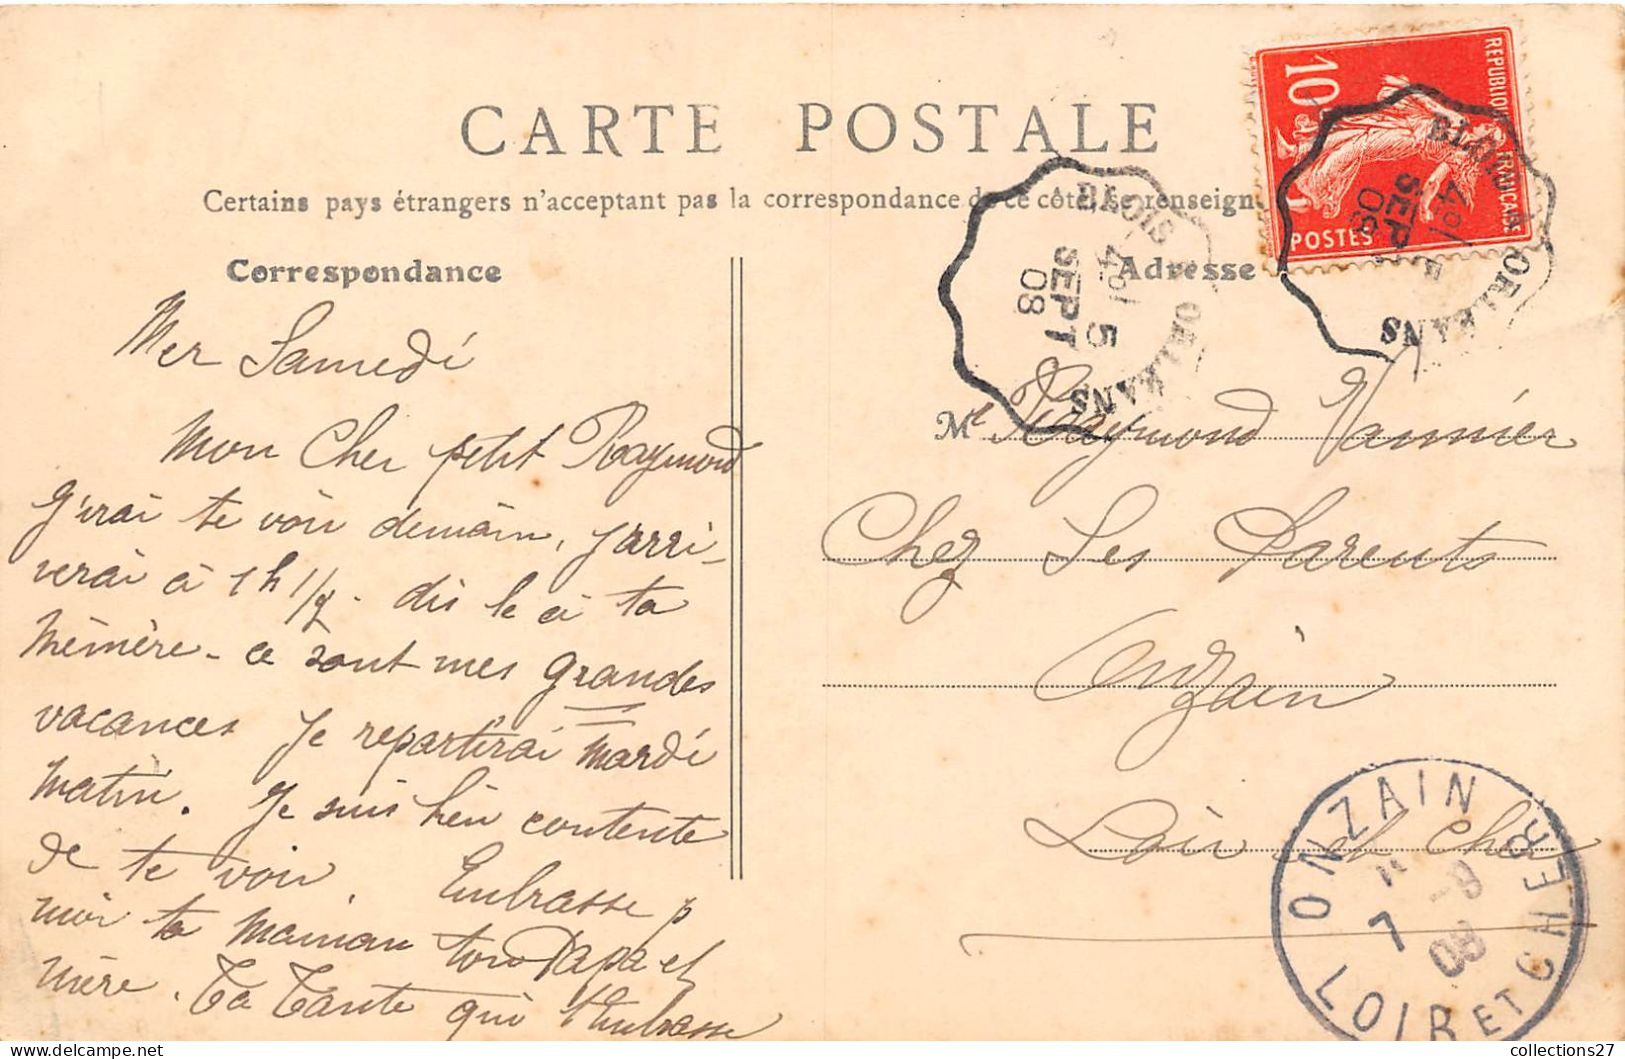 CARTE POSTALE
Certains pays étrangers n'acceptant pas la correspondance de ce côté, se renseign
Correspondance
Adresse
Mer Samedi
Mon Cher petit Raymond
J'irai te voir demain, j'arri-
verai à 1 h 1/2 - dis le à ta
mémère - ce sont mes grandes
vacances Je repartirai mardi
matin. Je suis bien contente
de te voir. Embrasse p
moi ta maman ton Papa et
mère. Ta Tante qui t'embrasse
Mr Raymond Vannier
Chez Ses Parents
Onzain
Loir et Cher
10c
REPUBLIQUE FRANÇAISE
POSTES
BLOIS A ORLEANS
5
SEPT
08
BLOIS A ORLEANS
SEPT
08
ONZAIN
7 -9
08
LOIR ET CHER
collections27